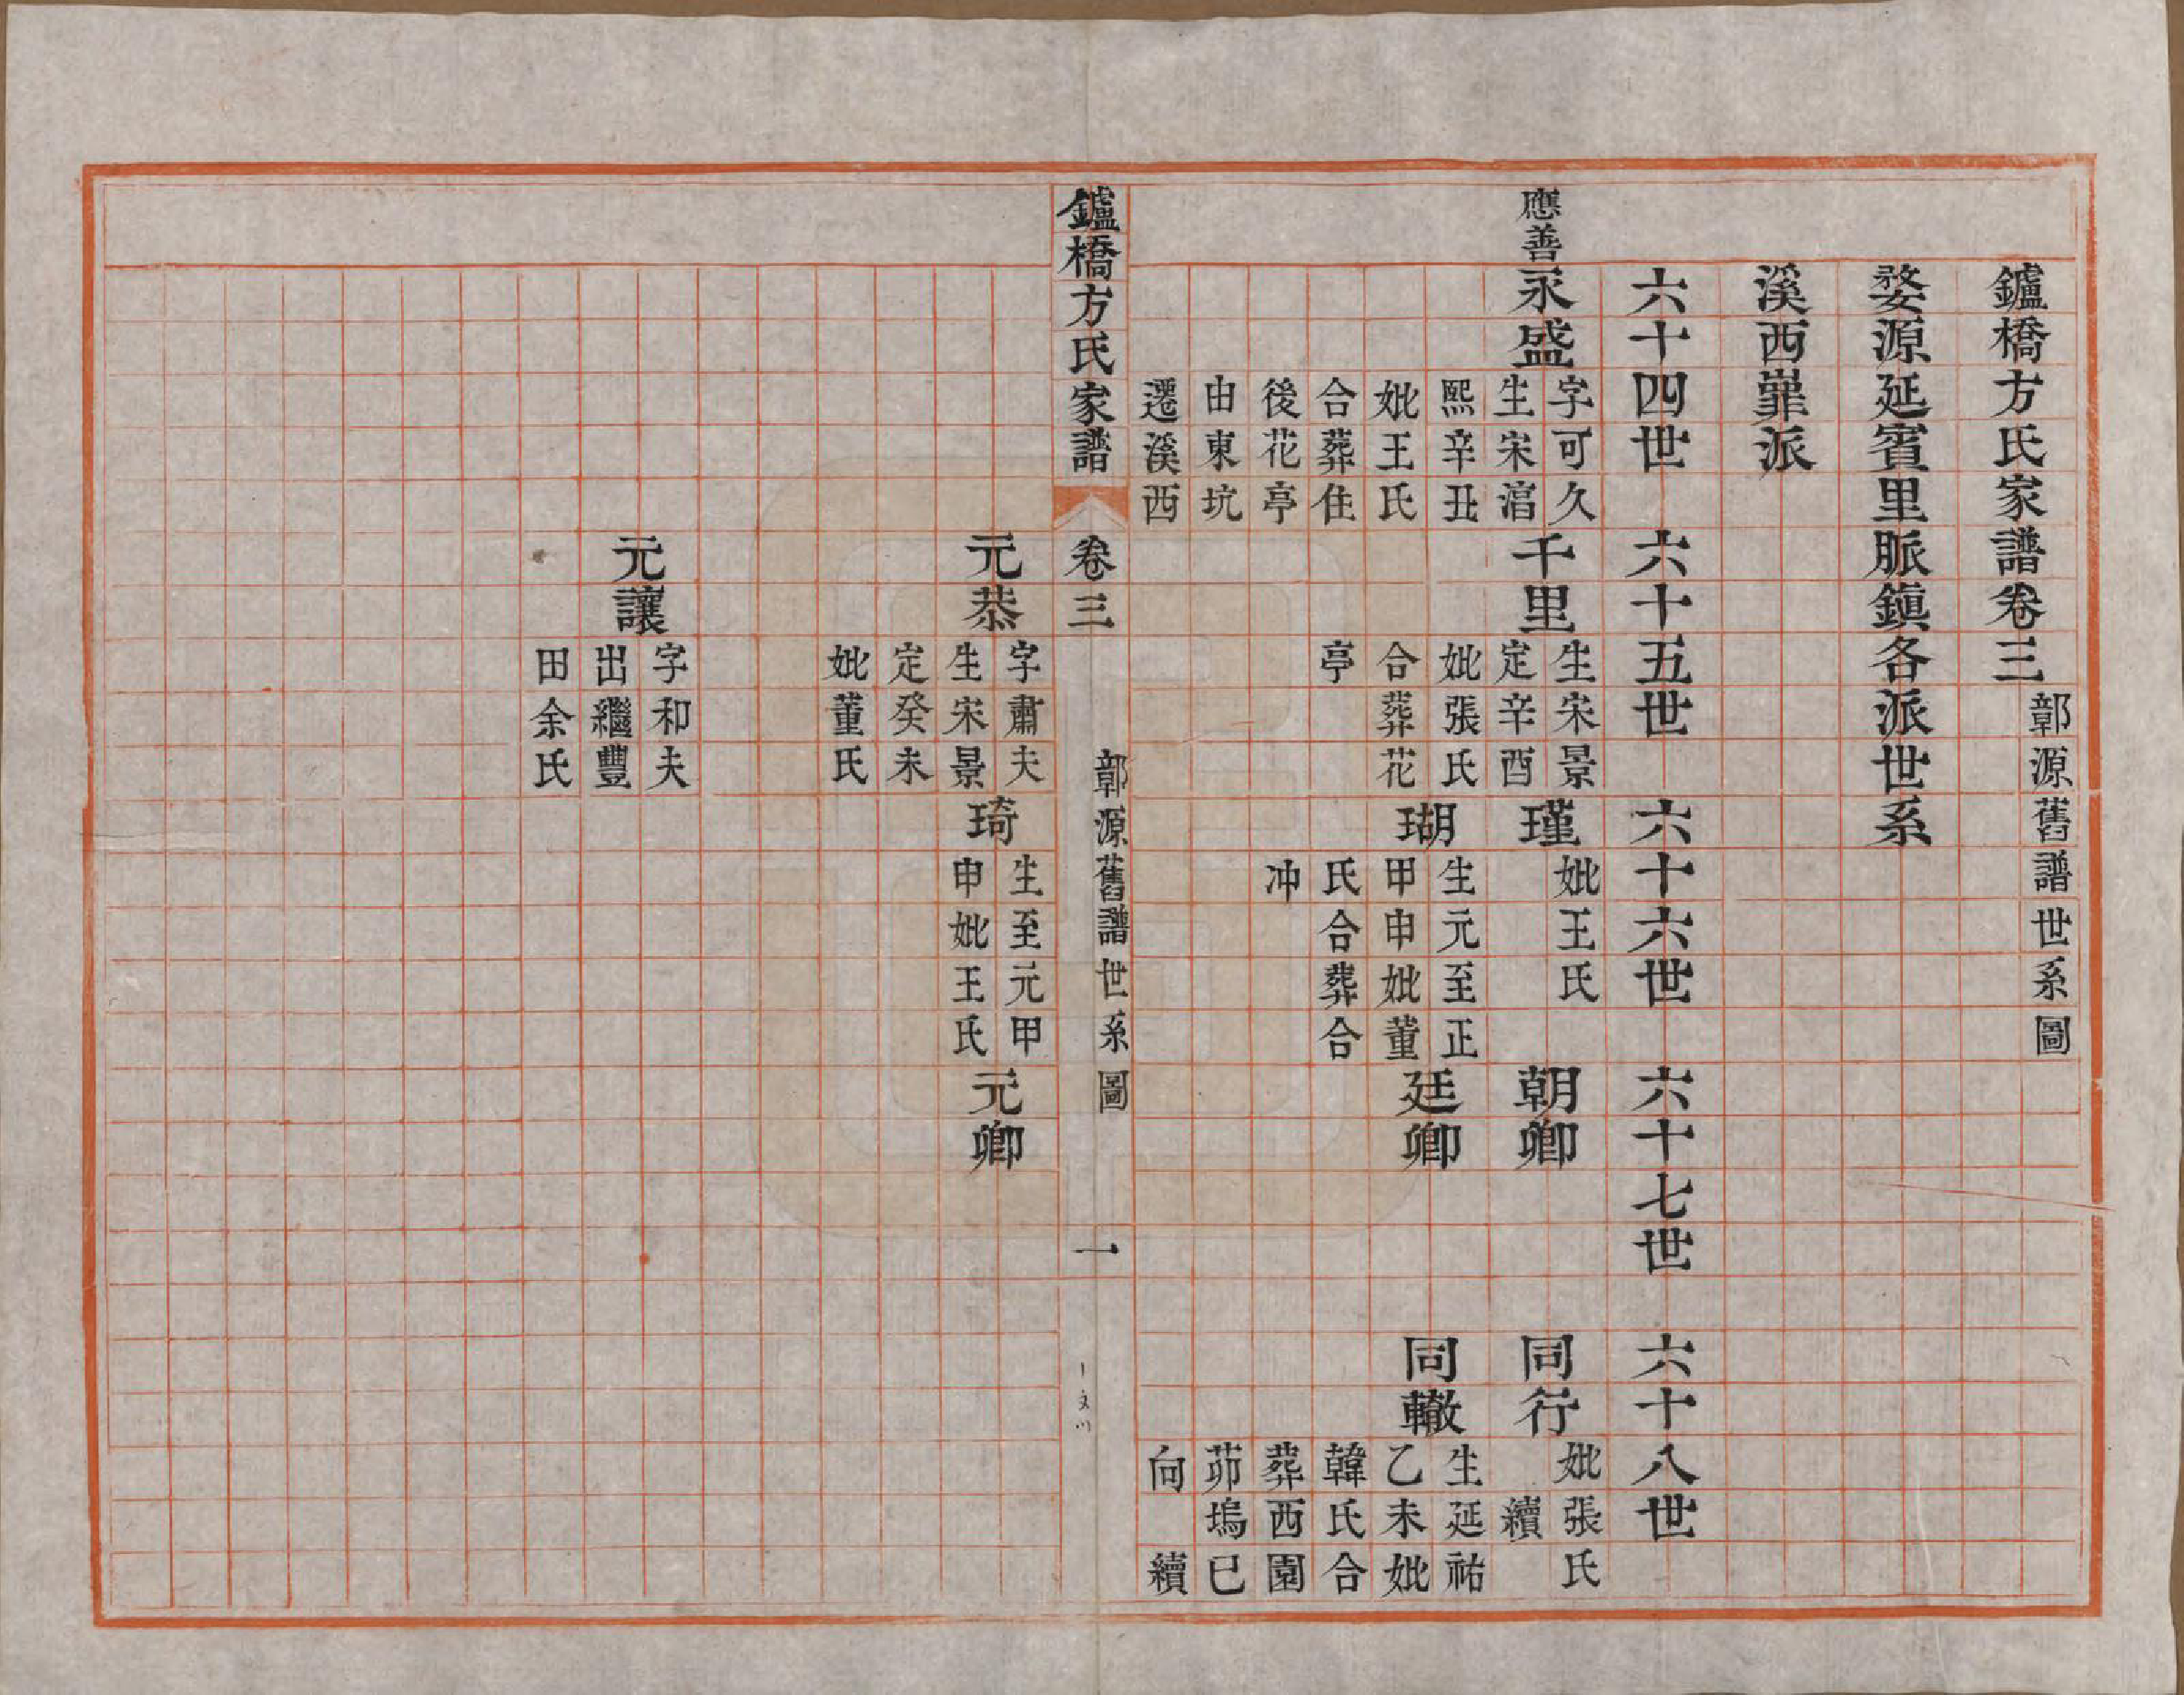 鑪橋方氏家譜卷三
鄣源舊譜世系圖
婺源延賓里脈鎮各派世系
溪西嶵派
六十四世 六十五世 六十六世 六十七世 六十八世
應善
永盛
字可久
生宋淯
熙辛丑
妣王氏
合葬住
後花亭
由東坑
遷溪西
千里
生宋景
定辛酉
妣張氏
合葬花
亭
瑾
妣王氏
朝卿
同行
妣張氏
續
瑚
生元至正
甲申妣董
氏合葬合
冲
廷卿
同轍
生延祐
乙未妣
韓氏合
葬西園
茆塢巳
向 續
鑪橋方氏家譜 卷三 鄣源舊譜世系圖 一
元恭
字肅夫
生宋景
定癸未
妣董氏
琦
生至元甲
申妣王氏
元卿
元讓
字和夫
出繼豐
田余氏